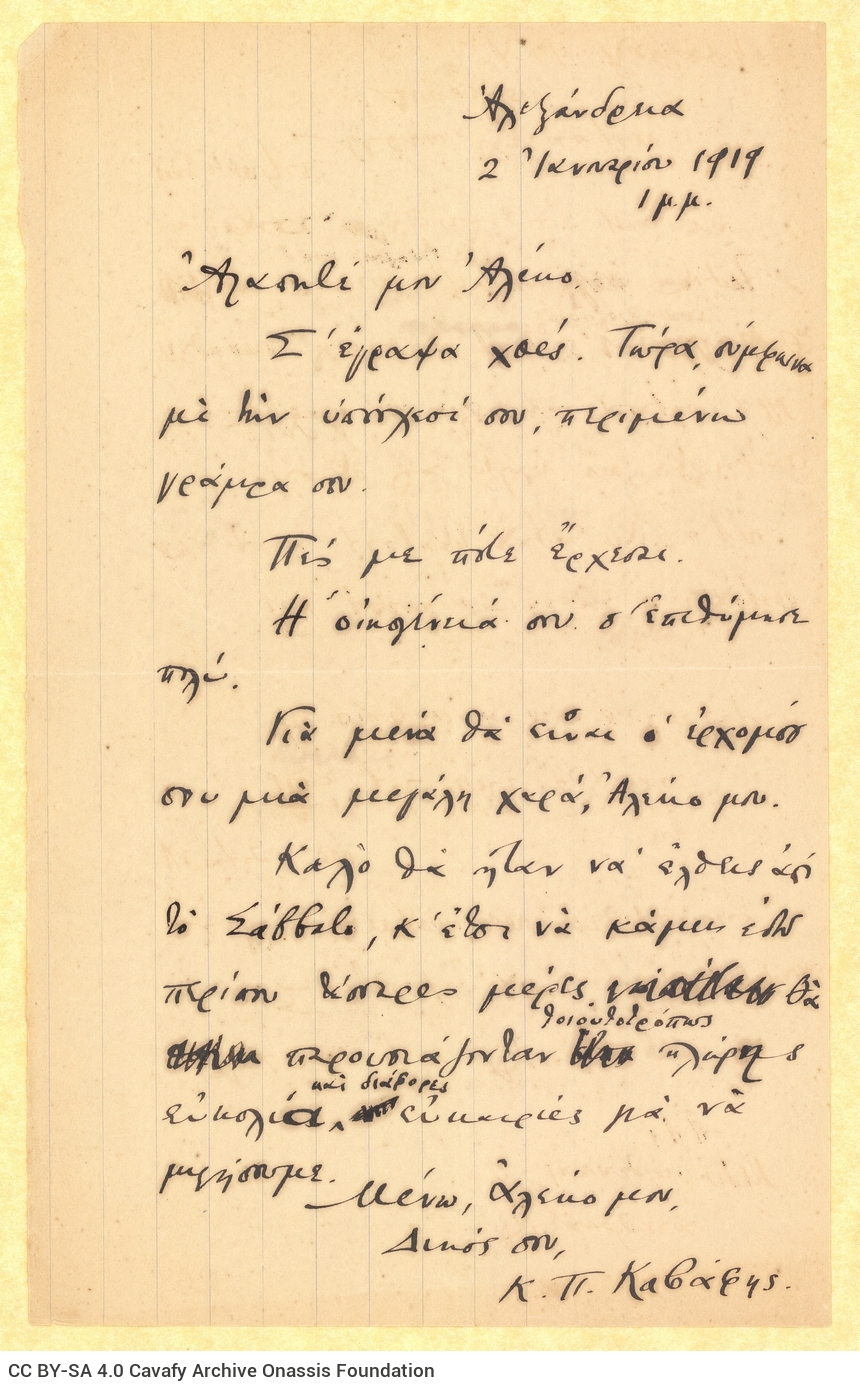 Ἀλεξάνδρεια
2 Ἰανουαρίου 1919
1 μ.μ.
Ἀγαπητέ μου Ἀλέκο,
Σ' ἔγραψα χθές. Τώρα, σύμφωνα
μὲ τὴν ὑπόσχεσί σου, περιμένω
γράμμα σου.
Πές με πότε ἔρχεσαι.
Ἡ οἰκογένειά σου σ' ἐπεθύμησε
πολύ.
Γιὰ μενὰ θὰ εἶναι ὁ ἐρχομός
σου μιὰ μεγάλη χαρά, Ἀλέκο μου.
Καλὸ θὰ ἦταν νὰ ἔλθεις ἀπὸ
τὸ Σάββατο, κ' ἔτσι νὰ κάμεις ἐδῶ
περίπου τέσσαρες μέρες. θὰ
τοιουτοτρόπως
παρουσιάζονταν πλήρης
καὶ διάφορες
εὐκολία, εὐκαιρίες γιὰ νὰ
μιλήσουμε.
Μένω, Ἀλέκο μου,
Δικός σου,
Κ. Π. Καβάφης.
CC BY-SA 4.0 Cavafy Archive Onassis Foundation